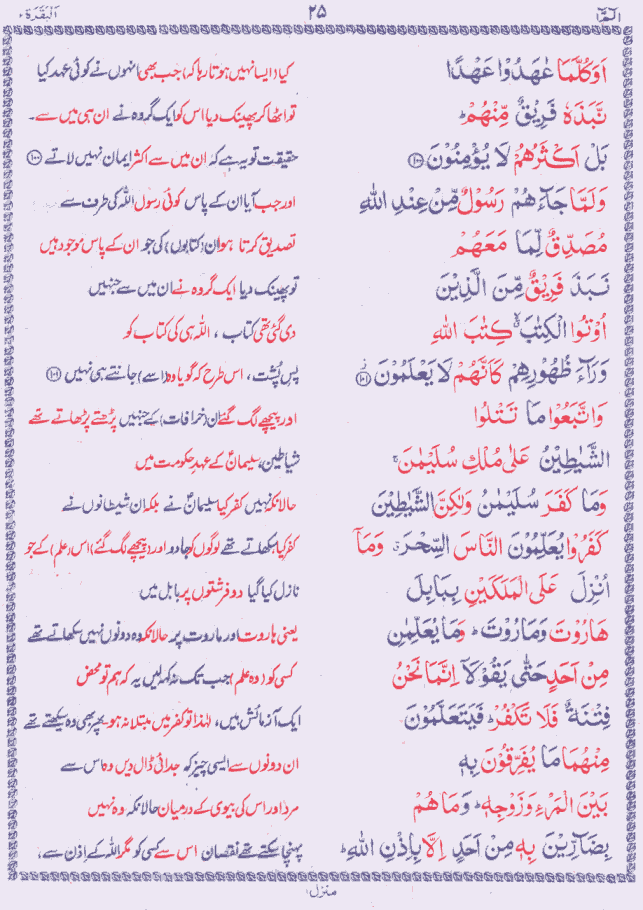 الٓمّٓ
۲۵
اَلْبَقَرَة ۲
اَوَكُلَّمَا عٰهَدُوْا عَهْدًا
کیا (ایسا نہیں ہوتا رہا کہ) جب بھی انہوں نے کوئی عہد کیا
نَّبَذَهٗ فَرِيْقٌ مِّنْهُمْ ؕ
تو اٹھا کر پھینک دیا اس کو ایک گروہ نے ان ہی میں سے۔
بَلْ اَكْثَرُهُمْ لَا يُؤْمِنُوْنَ ﴿۱۰۰﴾
حقیقت تو یہ ہے کہ ان میں سے اکثر ایمان نہیں لاتے ﴿۱۰۰﴾
وَلَمَّا جَآءَهُمْ رَسُوْلٌ مِّنْ عِنْدِ اللّٰهِ
اور جب آیا ان کے پاس کوئی رسول اللہ کی طرف سے
مُصَدِّقٌ لِّمَا مَعَهُمْ
تصدیق کرتا ہوا ان (کتابوں) کی جو ان کے پاس موجود ہیں
نَبَذَ فَرِيْقٌ مِّنَ الَّذِيْنَ
تو پھینک دیا ایک گروہ نے ان میں سے جنہیں
اُوْتُوا الْكِتٰبَ ۙ كِتٰبَ اللّٰهِ
دی گئی تھی کتاب ، اللہ ہی کی کتاب کو
وَرَآءَ ظُهُوْرِهِمْ كَاَنَّهُمْ لَا يَعْلَمُوْنَ ﴿۱۰۱﴾
پسِ پُشت ، اس طرح کہ گویا وہ (اسے) جانتے ہی نہیں ﴿۱۰۱﴾
وَاتَّبَعُوْا مَا تَتْلُوا
اور پیچھے لگ گئے ان (خرافات) کے جنہیں پڑھتے پڑھاتے تھے
الشَّيٰطِيْنُ عَلٰى مُلْكِ سُلَيْمٰنَ ۚ
شیاطین، سلیمانؑ کے عہدِ حکومت میں
وَمَا كَفَرَ سُلَيْمٰنُ وَلٰكِنَّ الشَّيٰطِيْنَ
حالانکہ نہیں کفر کیا سلیمانؑ نے بلکہ ان شیطانوں نے
كَفَرُوْا يُعَلِّمُوْنَ النَّاسَ السِّحْرَ ۗ وَمَآ
کفر کیا سکھاتے تھے لوگوں کو جادو اور (پیچھے لگ گئے) اس (علم) کے جو
اُنْزِلَ عَلَى الْمَلَكَيْنِ بِبَابِلَ
نازل کیا گیا دو فرشتوں پر بابل میں
هَارُوْتَ وَمَارُوْتَ ؕ وَمَا يُعَلِّمٰنِ
یعنی ہاروت اور ماروت پر حالانکہ وہ دونوں نہیں سکھاتے تھے
مِنْ اَحَدٍ حَتّٰى يَقُوْلَآ اِنَّمَا نَحْنُ
کسی کو (وہ علم) جب تک نہ کہہ لیں یہ کہ ہم تو محض
فِتْنَةٌ فَلَا تَكْفُرْ ؕ فَيَتَعَلَّمُوْنَ
ایک آزمائش ہیں، لہٰذا تو کفر میں مبتلا نہ ہو پھر بھی وہ سیکھتے تھے
مِنْهُمَا مَا يُفَرِّقُوْنَ بِهٖ
ان دونوں سے ایسی چیز کہ جدائی ڈال دیں وہ اس سے
بَيْنَ الْمَرْءِ وَزَوْجِهٖ ؕ وَمَا هُمْ
مرد اور اس کی بیوی کے درمیان حالانکہ وہ نہیں
بِضَآرِّيْنَ بِهٖ مِنْ اَحَدٍ اِلَّا بِاِذْنِ اللّٰهِ ؕ
پہنچا سکتے تھے نقصان اس سے کسی کو مگر اللہ کے اذن سے ،
منزل۱